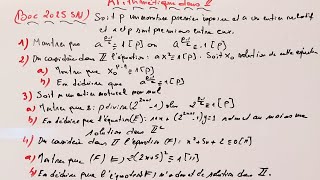 Arithmétique dans Z
(Bac 2025 SN) Soit p un nombre premier impair et a un entier relatif
et a et p sont premiers entre eux.
1) Montrer que a^((p-1)/2) ≡ 1 [p] ou a^((p-1)/2) ≡ -1 [p]
2) On considère dans Z l'équation : ax² ≡ 1 [p]. Soit x₀ solution de cette équation
a) Montrer que x₀^(p-1) ≡ 1 [p]
b) En déduire que a^((p-1)/2) ≡ 1 [p]
3) Soit n un entier naturel non nul
a) Montrer que si p divise (2^(2n+1) - 1) alors 2^((p-1)/2) ≡ 1 [p]
b) En déduire que l'équation (E): 11x + (2^(2n+1) - 1)y = 1 admet au moins une
solution dans Z²
4) On considère dans Z l'équation (F): x² + 5x + 2 ≡ 0 [11]
a) Montrer que (F) ⇔ 2(2x+5)² ≡ 1 [11]
b) En déduire que l'équation (F) n'admet de solution dans Z